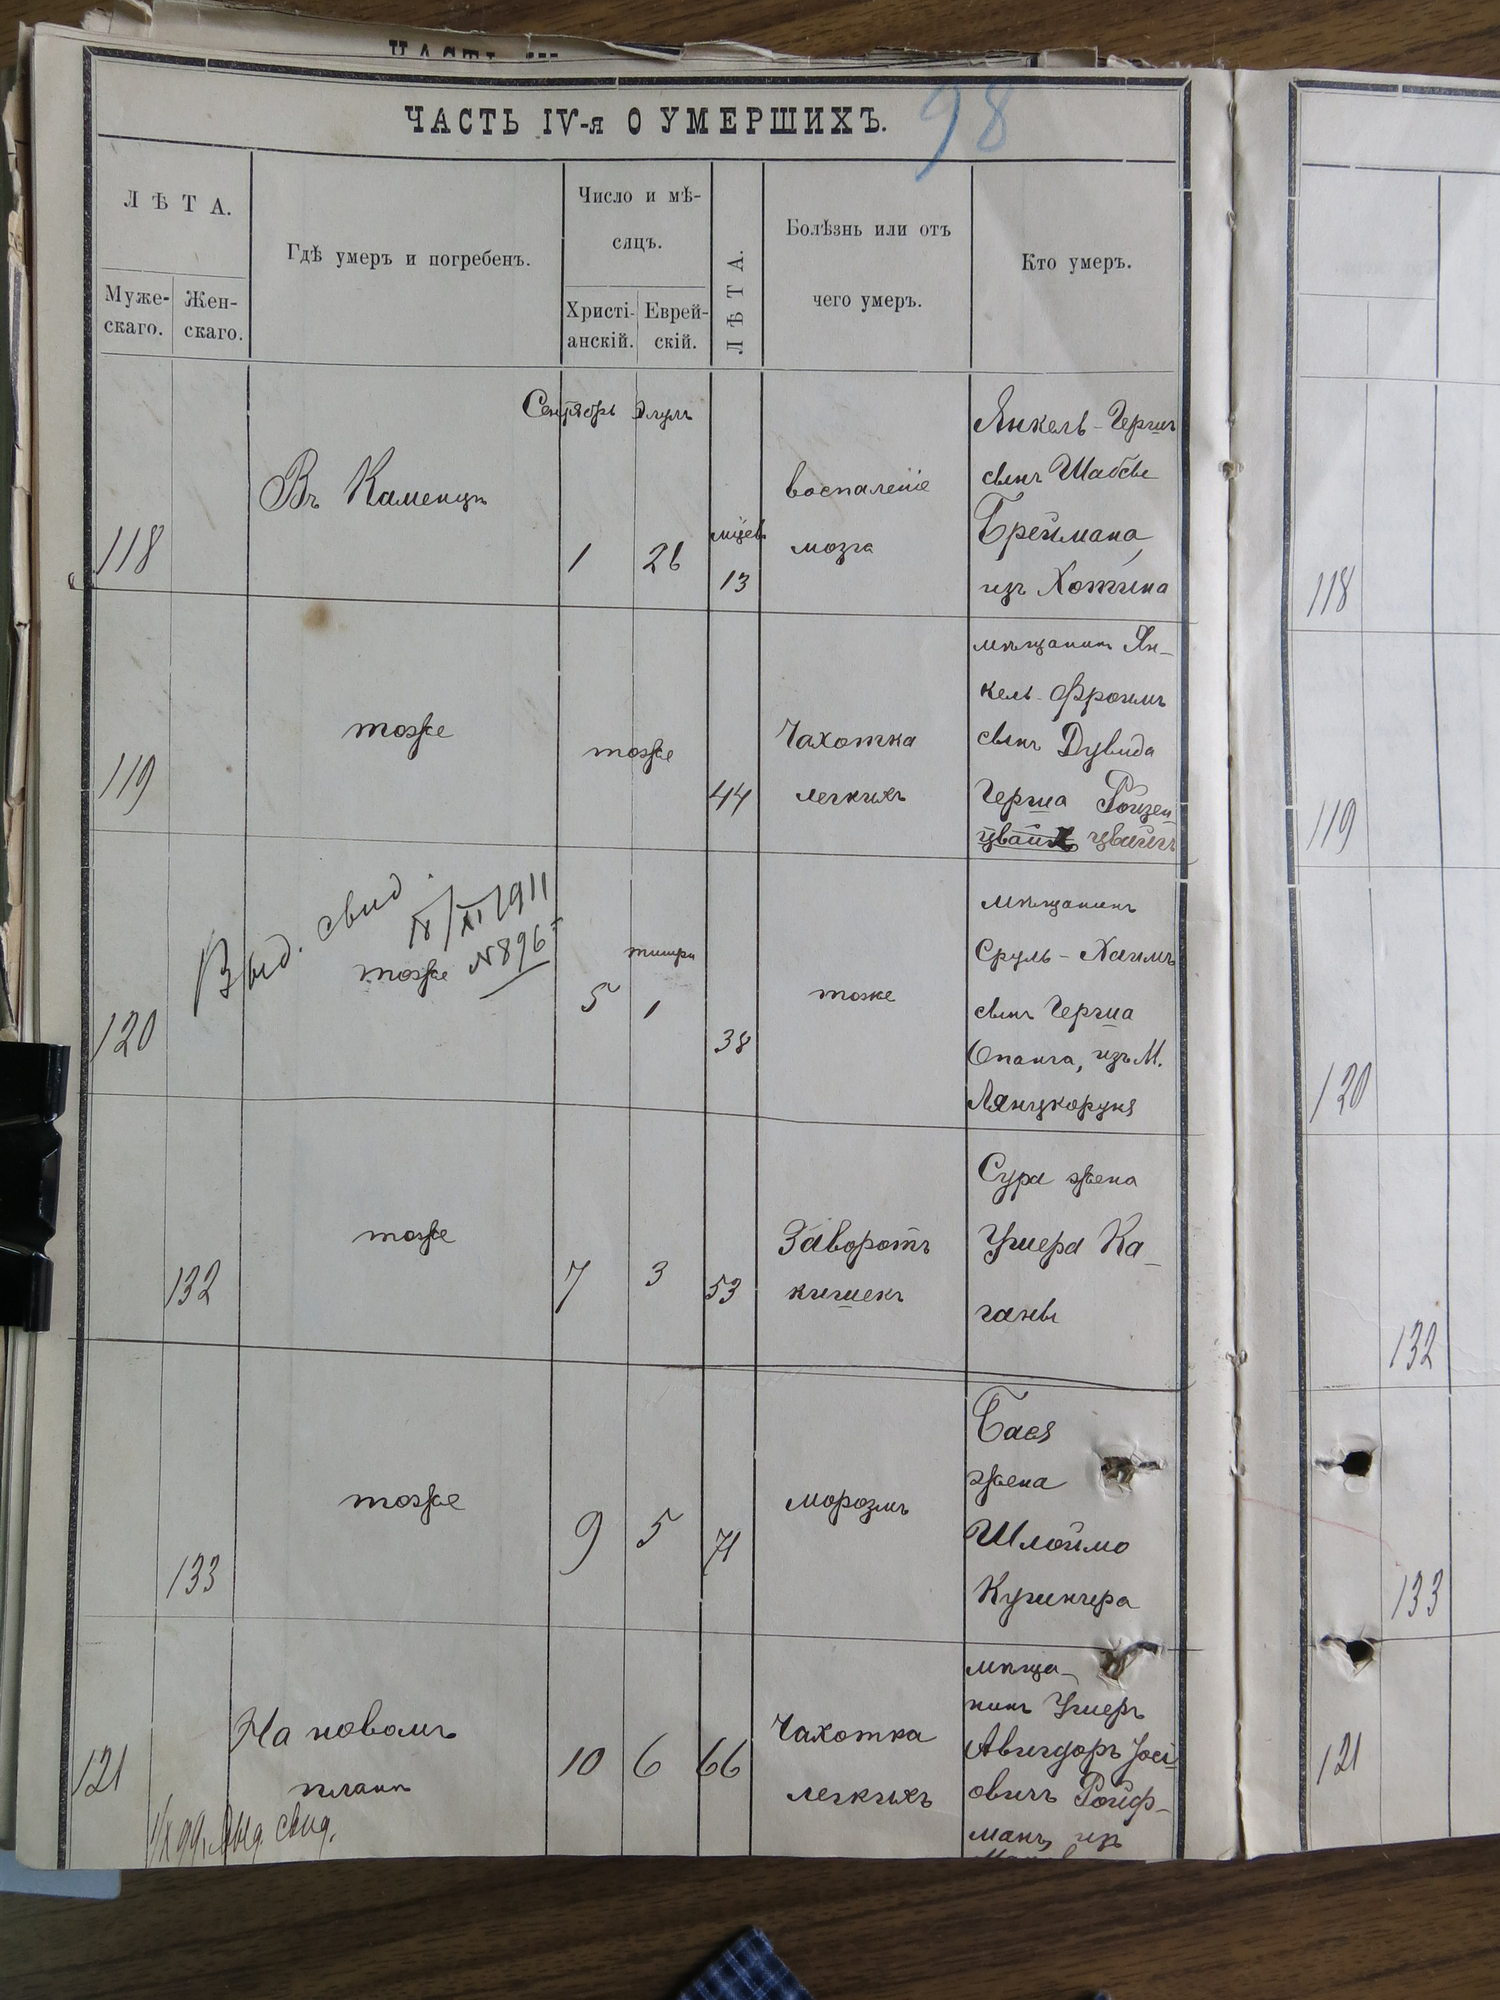 ЧАСТЬ IV-я О УМЕРШИХЪ.
98
ЛѢТА.
Муже-
скаго.
Жен-
скаго.
Гдѣ умеръ и погребенъ.
Число и мѣ-
сяцъ.
Христі-
анскій.
Еврей-
скій.
ЛѢТА.
Болѣзнь или отъ
чего умеръ.
Кто умеръ.
118
Въ Каменцѣ
Сентябрь Элулъ
1 26
13
воспаленіе
мозга
Янкель-Гершъ
сынъ Шабсы
Бреймана,
изъ Хотина
119
тоже
тоже
44
Чахотка
легкихъ
мѣщанинъ Ян-
кель-Фроимъ
сынъ Дувида
Герша Ройзен-
цвайгъ
120
Выд. свид.
IX/XI 1911
тоже №896
тишри
5 1
38
тоже
мѣщанинъ
Сруль-Хаимъ
сынъ Герша
изъ М.
Лянцкоруня
132
тоже
7 3
53
Заворотъ
кишекъ
Сура жена
Ушера Ка-
ганы
133
тоже
9 5
71
Бася
жена
Шлоймо
121
На новомъ
планѣ
99. Выд. свид.
10 6 66
Чахотка
легкихъ
мѣща-
нинъ Ушеръ
Авигдоръ Іосі-
овичъ Ройф-
манъ, изъ
118
119
120
132
133
121